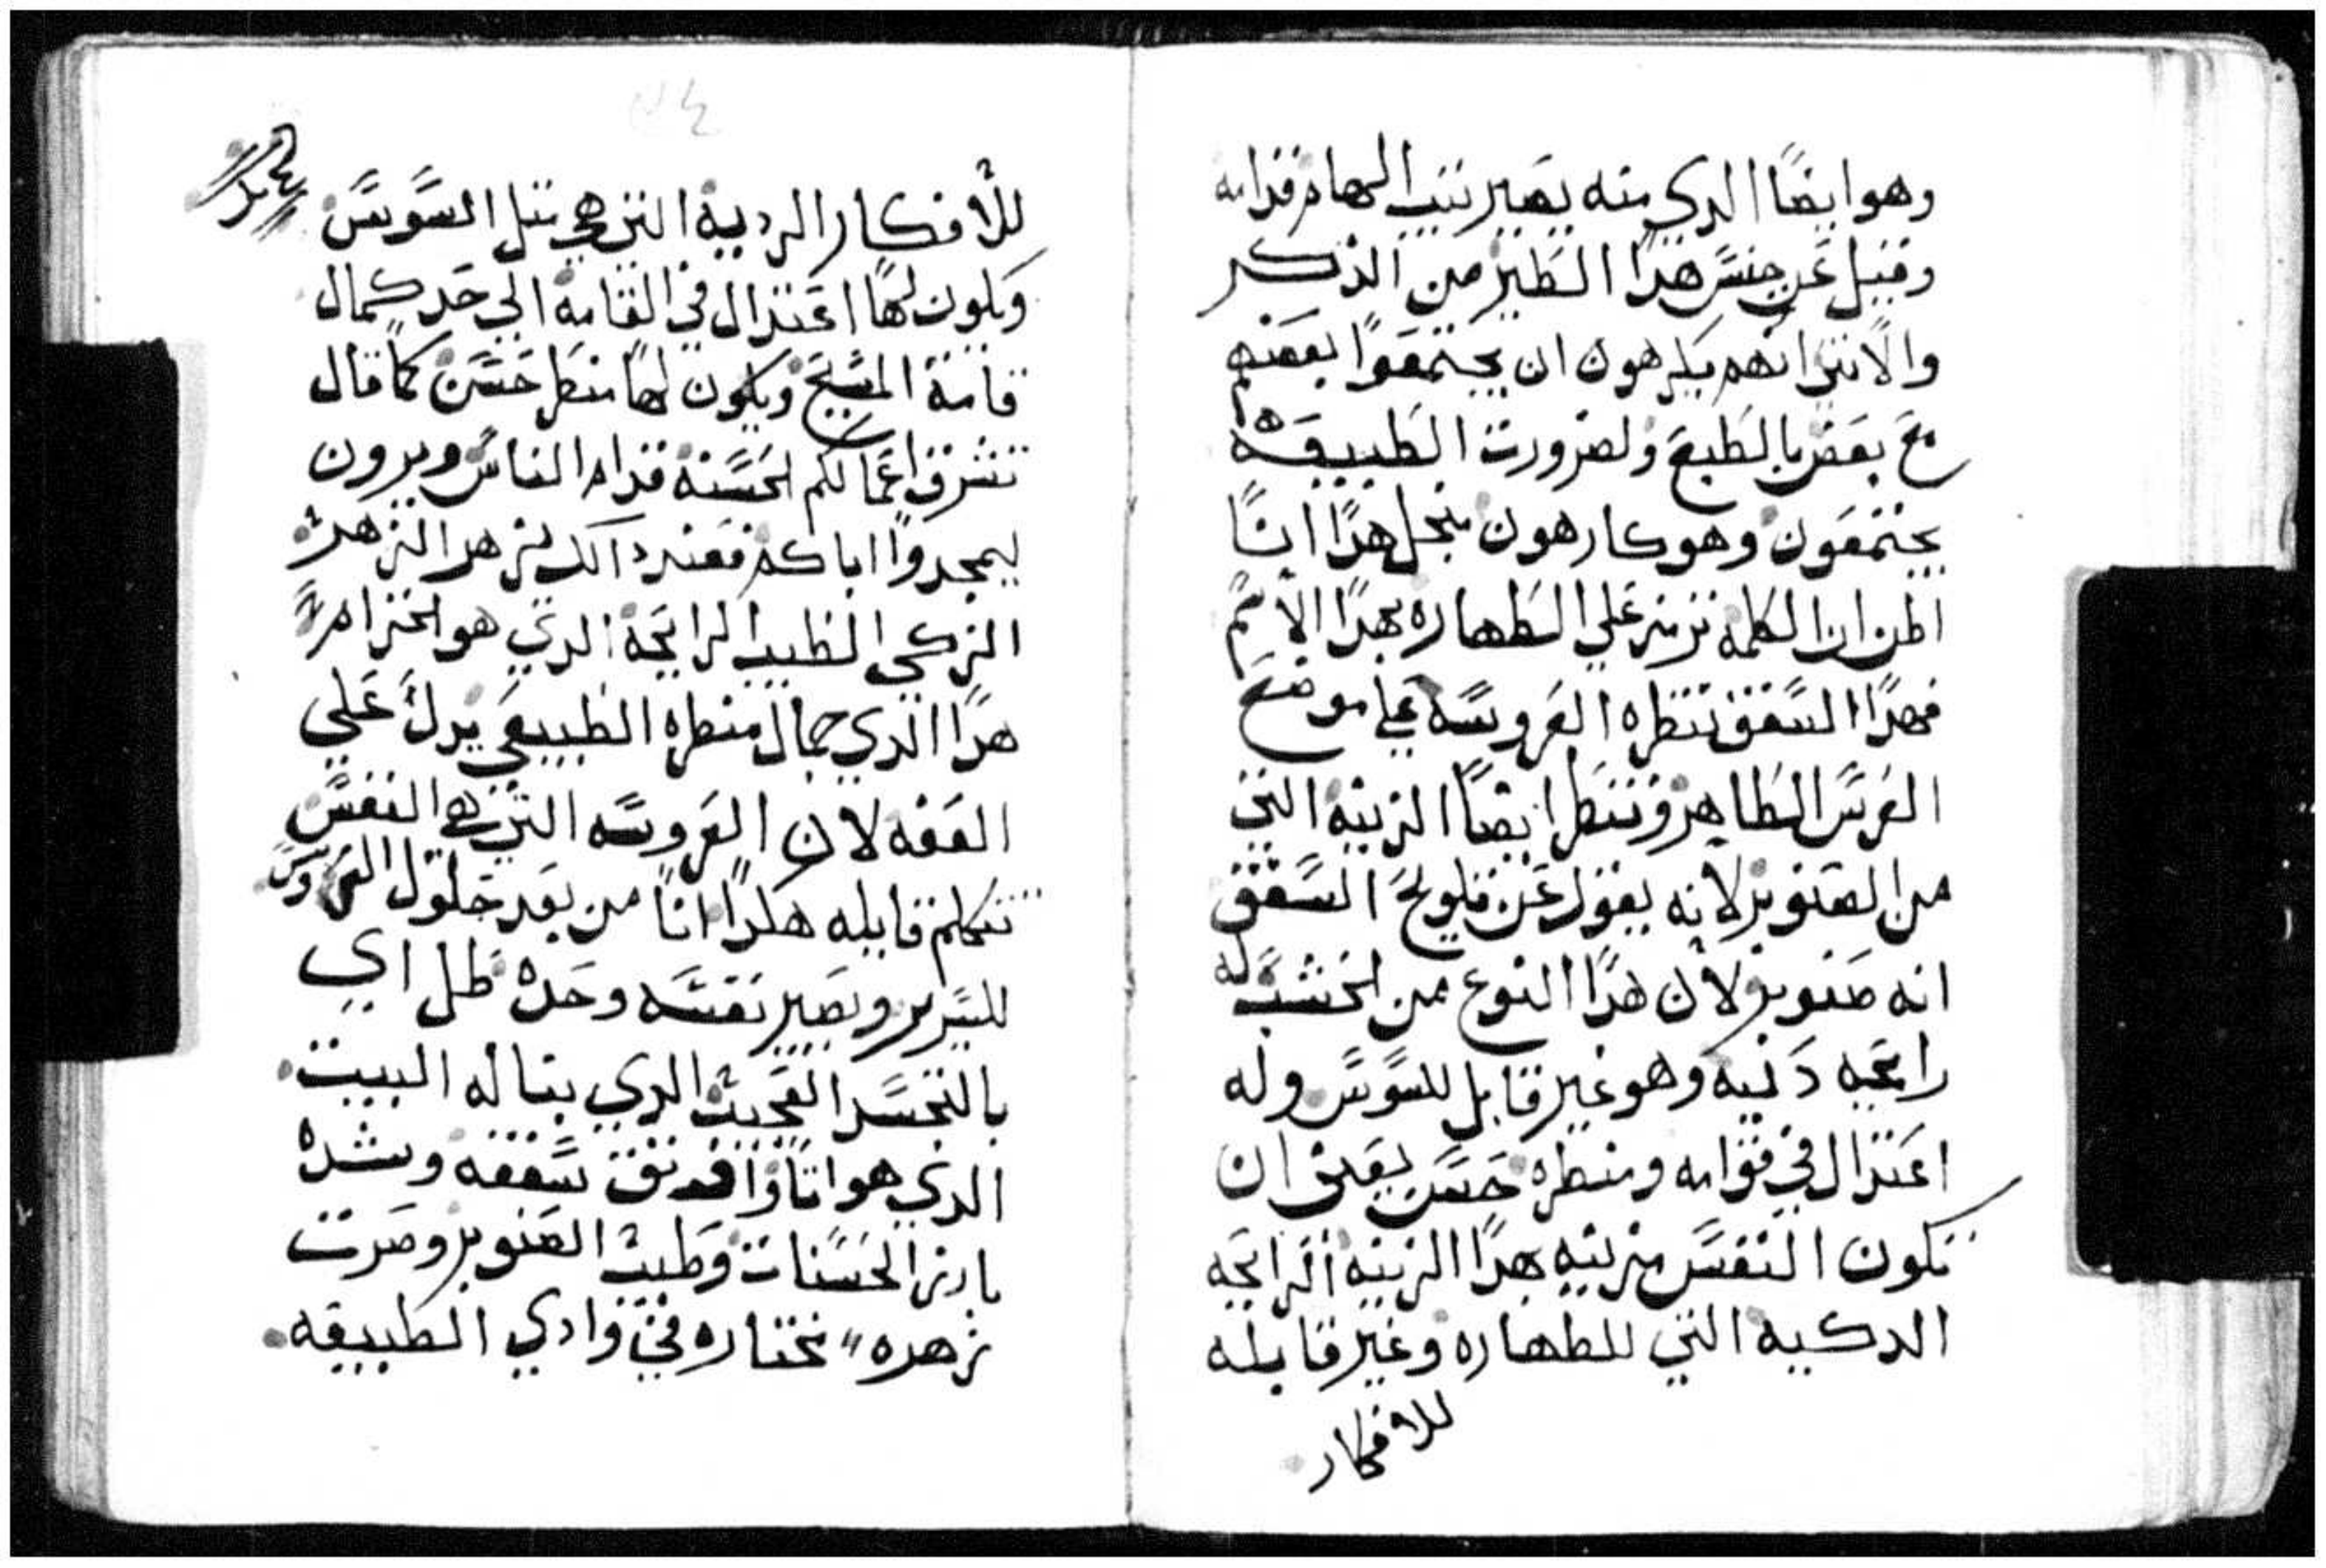 وهو ايضًا الدي منه يصير تتبيب الهام قدامه
وقيل عن جنس هدا الطير من الذكر
والانتي انهم يكرهون ان يجتمعوا بعضهم
مع بعض بالطبع ولضرورت الطبيعه
يجتمعون وهو كارهون منجل هدا انا
اظن ان الكلمه ترمز علي الطهاره بهدا الاسم
فهدا السقف تنظره العروسه علي موضع
العرس الطاهر وتنظر ايضًا الزينه التي
من الصنوبر لانه يقول عن فلوح السقف
انه صنوبر لان هدا النوع من الخشب له
رايحه دكيه وهو غير قابل للسوس وله
اعتدال في قوامه ومنظره حسن يعني ان
تكون النفس مزينه بهدا الزينه الرايحه
الدكيه التي للطهاره وغير قابله
للافكار
للافكار الرديه التي هي متل السوس
ويكون لها اعتدال في القامه الي حد كمال
قامة المسيح ويكون لها منظر حسن كما قال
تشرق اعمالكم الحسنة قدام الناس ويرون
ليمجدوا اباكم فعند دالك يزهر الزهر
الزكي الطيب الرايحة الدي هو الخزام
هدا الدي جمال منظره الطبيعي يدل علي
العفه لان العروسه التي هي النفس
تتكلم قايله هكدا انا من بعد حلول العروس
للسرير وتصير نفسه وحده ظل اي
بالتجسد العجيب الدي بناله البيت
الدي هو انا واتقن سقفه وشده
بارز الحسنات وطيب الصنوبر وصرت
زهره مختاره في وادي الطبيعه